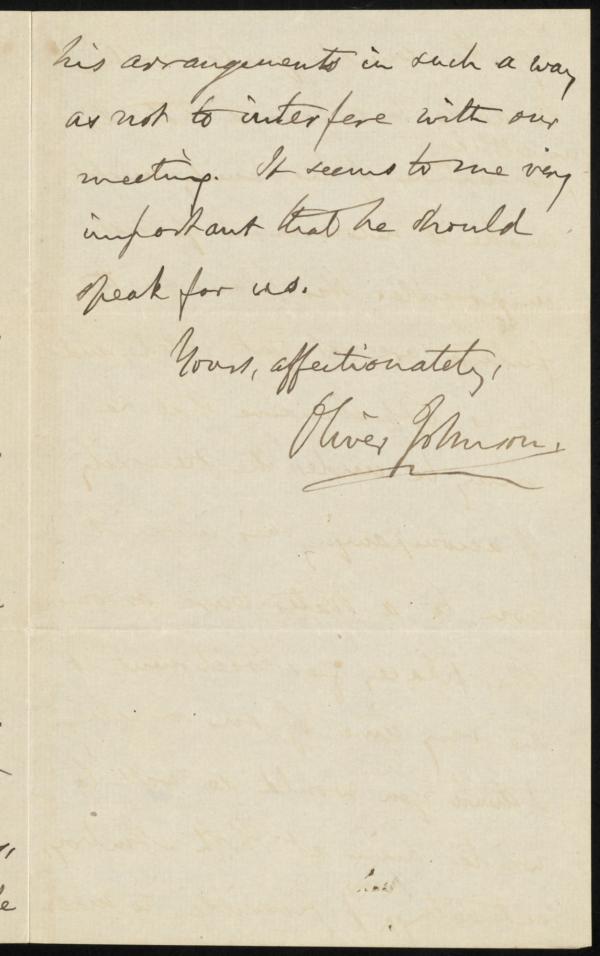 his arrangements in such a way
as not to interfere with our
meeting. It seems to me very
important that he should
speak for us.
Yours, affectionately,
Oliver Johnson.